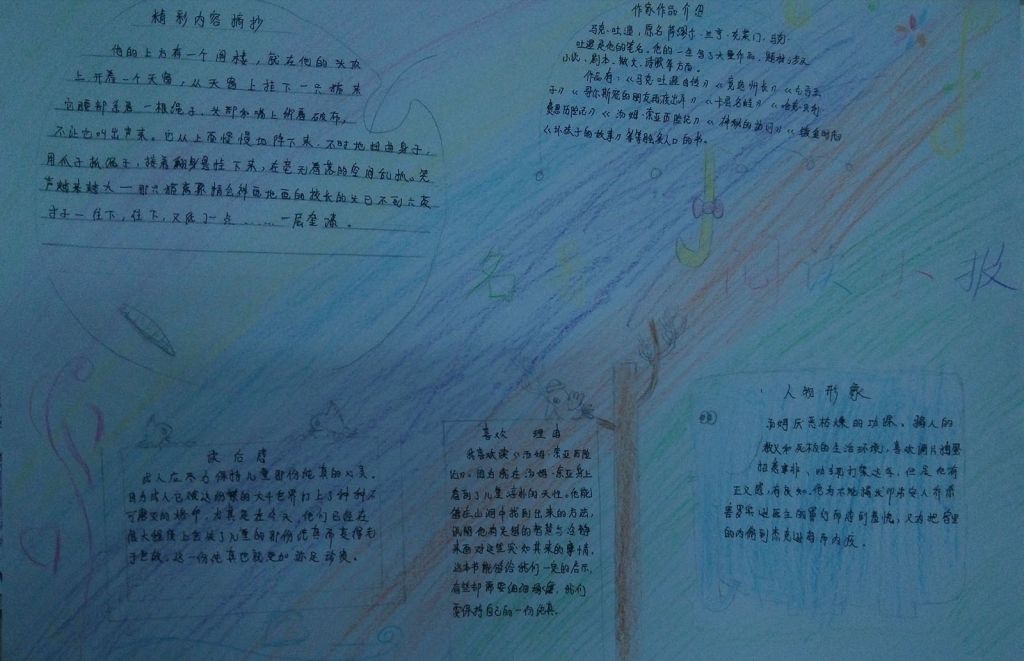 精彩内容摘抄
他的上方有一个阁楼，就在他的头顶
上，开着一个天窗，从天窗上挂下一只猫来
它腰部系着一根绳子，头部和嘴上绑着破布，
不让它叫出声来。它从上面慢慢地降下来，不时地扭曲身子，
用爪子抓绳子，接着翻身悬挂下来，在空无着落的空间乱抓。笑
声越来越大——那只猫离聚精会神画地图的校长的头已不到六英
寸了——往下，往下，又低了一点……一层金漆。
作家作品介绍
马克·吐温，原名萨缪尔·兰亨·克莱门，马克·
吐温是他的笔名。他的一生写了大量作品，题材涉及
小说、剧本、散文、诗歌等方面。
作品有：《马克·吐温自传》《竞选州长》《乞丐王
子》《哥尔斯密的朋友再度出洋》《卡县名蛙》《哈克贝利·
费恩历险记》《汤姆·索亚历险记》《神秘的访问》《镀金时代》
《坏孩子的故事》等等脍炙人口的书。
名著阅读小报
读后感
成人应尽力保持儿童那份纯真的心灵。
因为成人已被这纷繁的大千世界打上了种种不
可磨灭的烙印，尤其是在今天，他们已经在
很大程度上丧失了儿童的那份纯真而变得无
这一份纯真也就更加弥足珍贵。
喜欢 理由
我喜欢读《汤姆·索亚历险
记》。因为我在汤姆·索亚身上
看到了儿童活泼的天性。他能
够在山洞中找到出来的方法，
说明他有足够的智慧与冷静
来面对这些突如其来的事情。
这本书能够给我们一定的启示，
有些却需要细细琢磨，我们
要保持自己的一份纯真。
人物形象
汤姆厌恶枯燥的功课、骗人的
教义和死板的生活环境，喜欢调皮捣蛋
招惹是非、幼稚打架逃学，但是他有
正义感，有良知。他为不能揭发印第安人乔杀
害罗宾逊医生的罪行而感到羞愧，又为把哈里